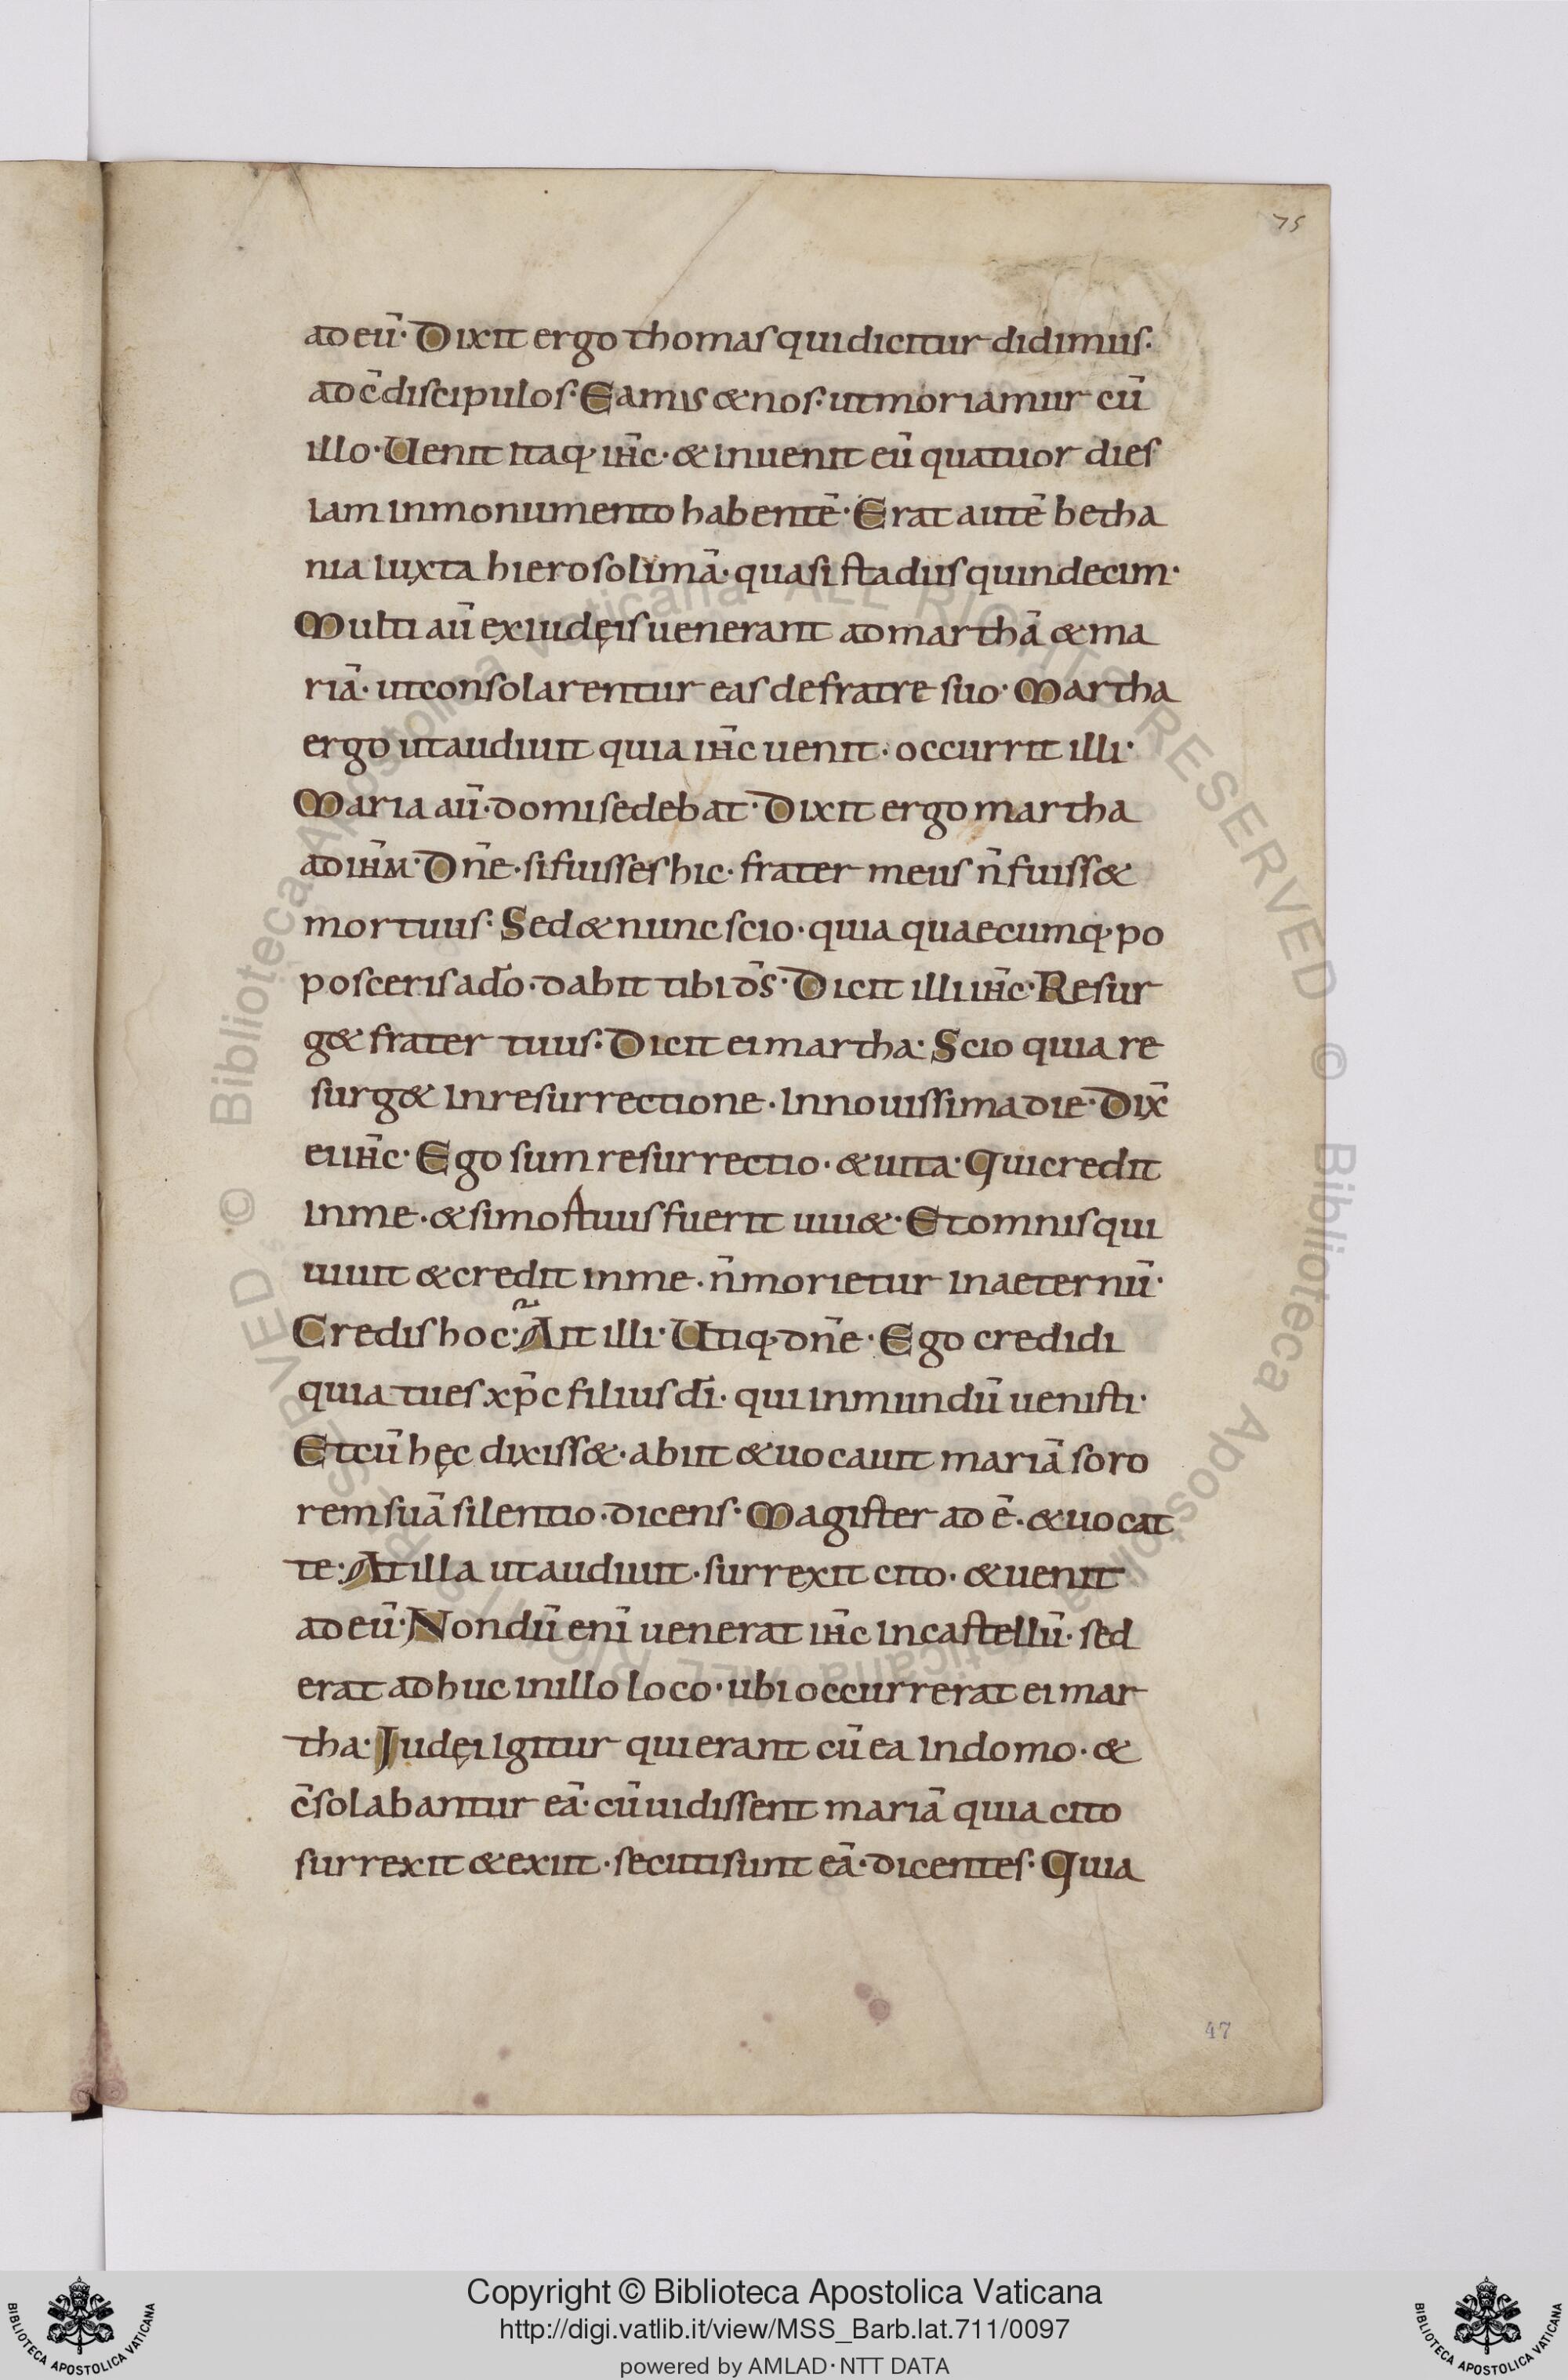 75
ad eū· Dixit ergo thomas qui dicitur didimus·
ad c̄discipulos· Eamus & nos· ut moriamur cū
illo· Uenit itaq· ih̄c· & inuenit eū quatuor dies
iam in monumento habentē· Erat autē betha
nia iuxta hierosolimā· quasi stadiis quindecim·
Multi aū ex iudęis uenerant ad marthā & ma
riā· ut consolarentur eas de fratre suo· Martha
ergo ut audiuit quia ih̄c uenit· occurrit illi·
Maria aū· domi sedebat· Dixit ergo martha
ad ih̄m· Dn̄e· si fuisses hic· frater meus n̄ fuiss&
mortuus· Sed & nunc scio· quia quaecumq· po
posceris a dō· dabit tibi ds̄· Dicit illi ih̄c· Resur
g& frater tuus· Dicit ei martha· Scio quia re
surg& in resurrectione· in nouissima die· Dix̄
ei ih̄c· Ego sum resurrectio· & uita· Qui credit
in me· & si mortuus fuerit uiu&· Et omnis qui
uiuit & credit in me· n̄ morietur in aeternū·
Credis hoc· Ait illi· Utiq· dn̄e· Ego credidi
quia tu es xp̄c filius dī· qui in mundū uenisti·
Et cū hęc dixiss&· abiit & uocauit mariā soro
rem suā silentio· dicens· Magister ad ē· & uocat
te· At illa ut audiuit· surrexit cito· & uenit
ad eū· Nondū enī uenerat ih̄c in castellū· sed
erat adhuc in illo loco· ubi occurrerat ei mar
tha· Iudęi igitur qui erant cū ea in domo· &
c̄solabantur eā· cū uidissent mariā quia cito
surrexit & exiit· secuti sunt eā· dicentes· Quia
47
© Biblioteca Apostolica Vaticana ALL RIGHTS RESERVED
Copyright © Biblioteca Apostolica Vaticana
http://digi.vatlib.it/view/MSS_Barb.lat.711/0097
powered by AMLAD·NTT DATA
BIBLIOTECA APOSTOLICA VATICANA
BIBLIOTECA APOSTOLICA VATICANA